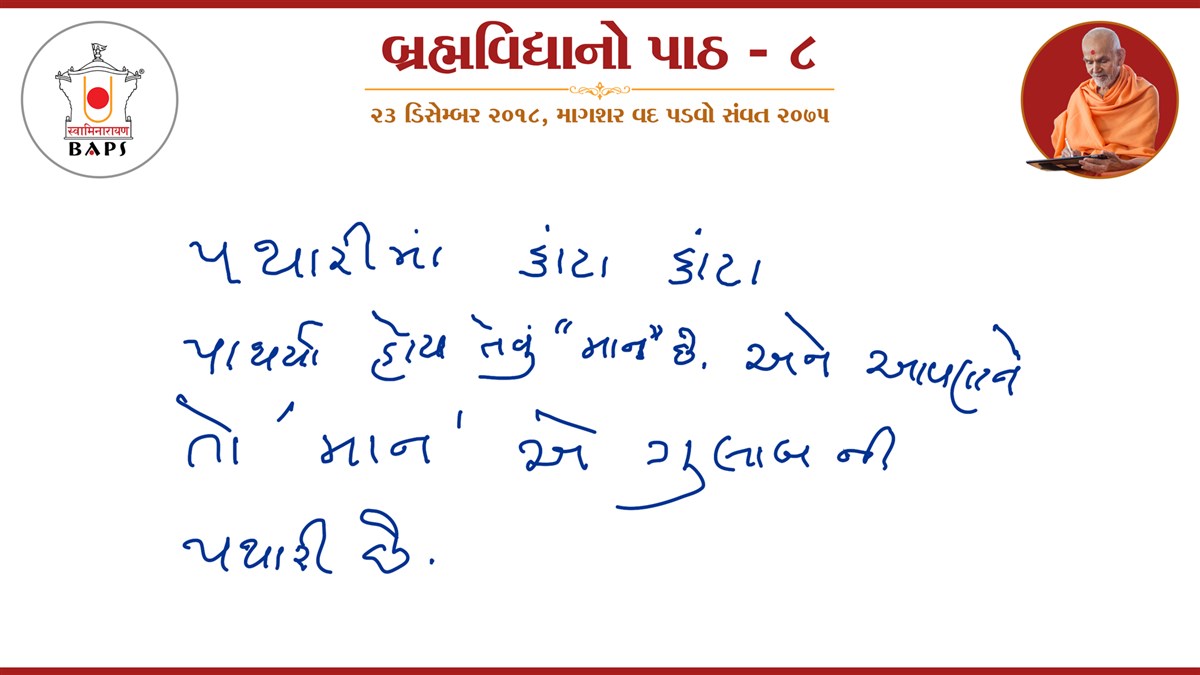 બ્રહ્મવિદ્યાનો પાઠ - ૮
૨૩ ડિસેમ્બર ૨૦૧૮, માગશર વદ પડવો સંવત ૨૦૭૫
स्वामिनारायण
BAPS
પથારીમાં કાંટા કાંટા
પાથર્યા હોય તેવું “માન” છે. અને આપણને
તો 'માન' એ ગુલાબની
પથારી છે.